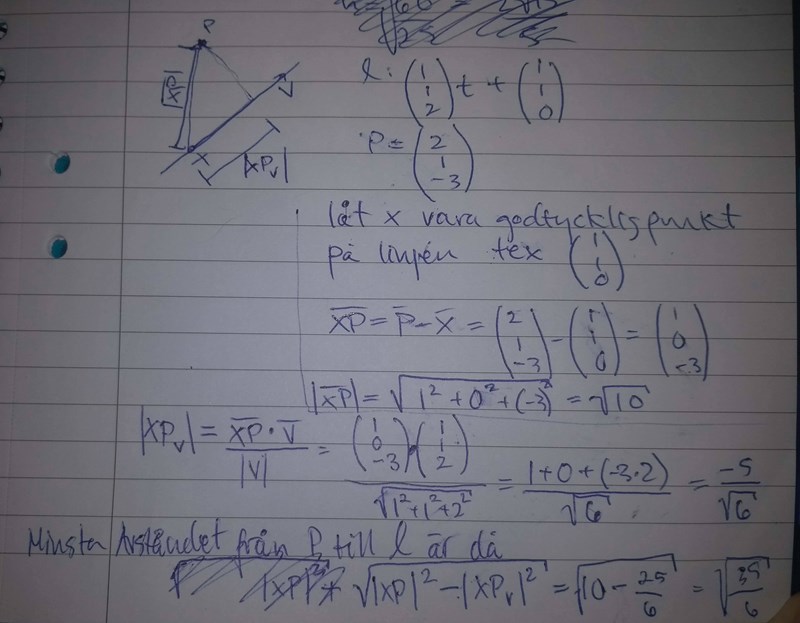 P
|PX|
X
V
|XPᵥ|
l: (1 1 2) t + (1 1 0)
P = (2 1 -3)
låt x vara godtycklig punkt
på linjen tex (1 1 0)
XP = P - X = (2 1 -3) - (1 1 0) = (1 0 -3)
|XP| = √(1² + 0² + (-3)²) = √10
|XPᵥ| = XP · V / |V| = (1 0 -3) · (1 1 2) / √(1² + 1² + 2²) = 1 + 0 + (-3·2) / √6 = -5 / √6
Minsta Avståndet från P till l är då
√(|XP|² - |XPᵥ|²) = √(10 - 25/6) = √(35/6)